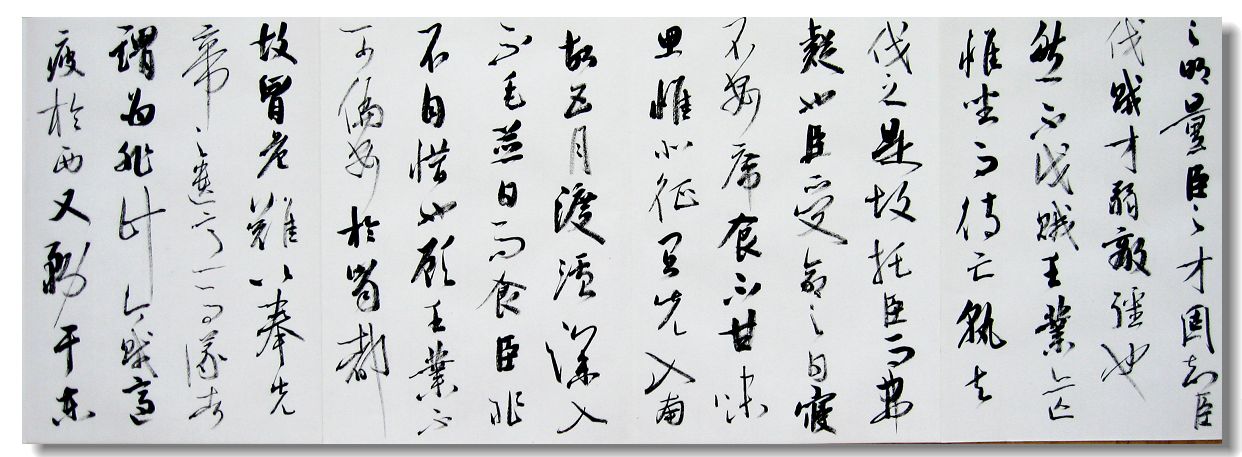 之明量臣之才固知臣
伐賊才弱敵彊也
然不伐賊王業亦亡
惟坐而待亡孰與
伐之是故托臣而弗
疑也臣受命之日寢
不安席食不甘味
思惟北征宜先入南
故五月渡瀘深入
不毛並日而食臣非
不自惜也顧王業不
可偏安於蜀都
故冒危難以奉先
帝之遺意而議者
謂為非計今賊適
疲於西又務于東